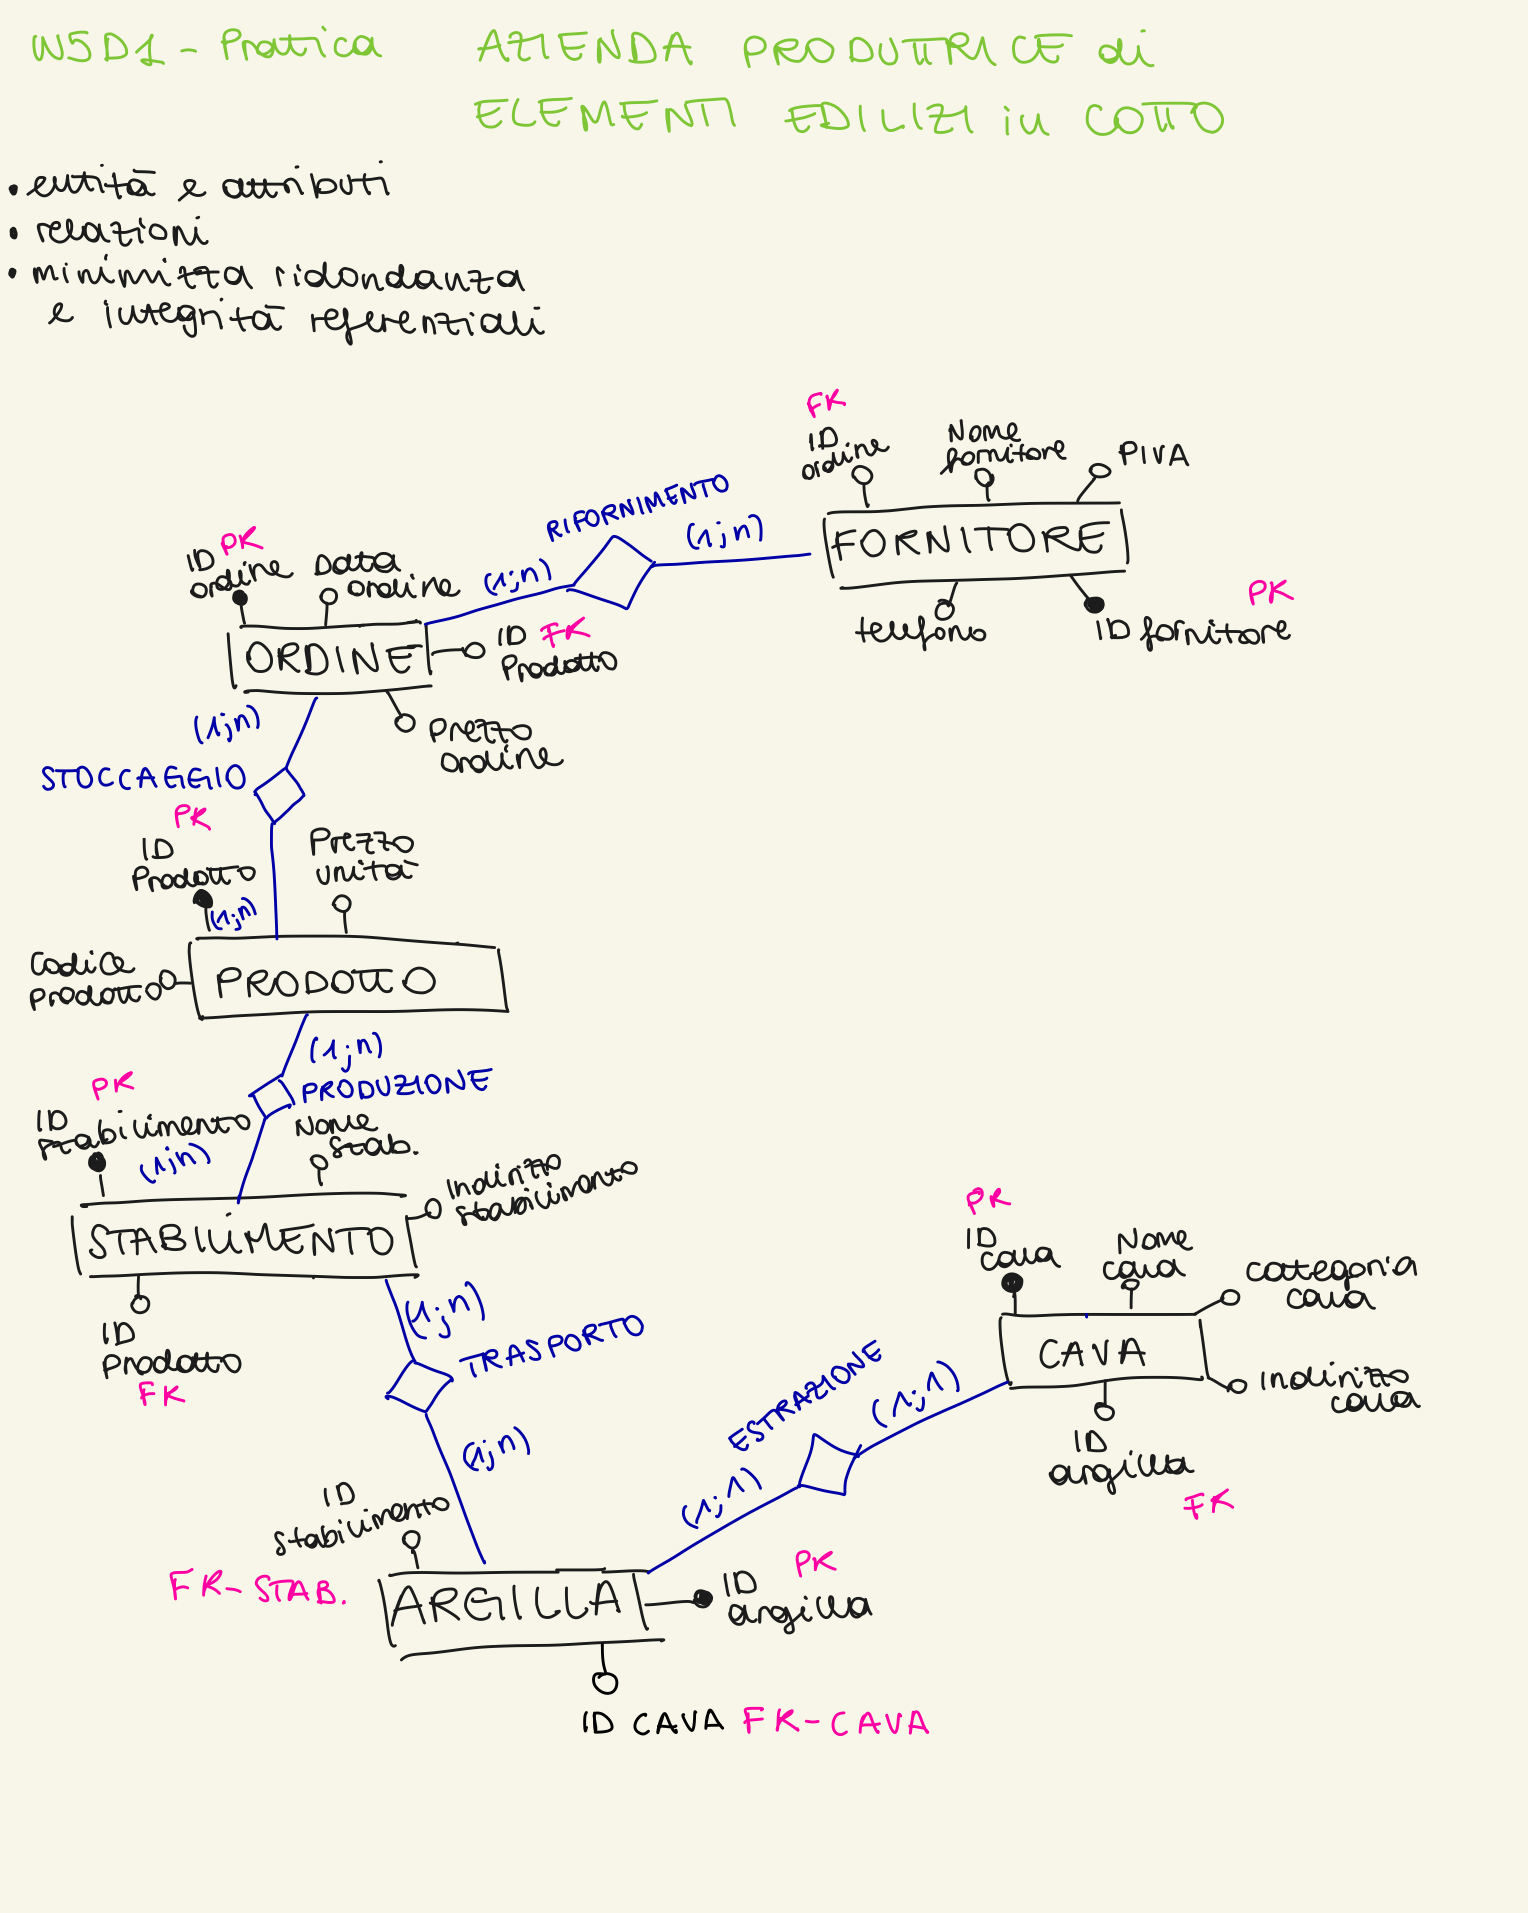 W5D1 - Pratica
AZIENDA PRODUTTRICE di
ELEMENTI EDILIZI in COTTO
• entità e attributi
• relazioni
• minimizza ridondanza
e integrità referenziali
FK
ID
ordine
Nome
fornitore
PIVA
FORNITORE
telefono
PK
ID fornitore
RIFORNIMENTO
(1;n)
(1;n)
PK
ID
ordine
Data
ordine
ORDINE
ID FK
Prodotto
Prezzo
ordine
(1;n)
STOCCAGGIO
PK
ID
Prodotto
(1;n)
Prezzo
unità
Codice
prodotto
PRODOTTO
(1;n)
PRODUZIONE
PK
ID
stabilimento
(1;n)
Nome
stab.
Indirizzo
stabilimento
STABILIMENTO
ID
Prodotto
FK
(1;n)
TRASPORTO
(1;n)
PK
ID
cava
Nome
cava
categoria
cava
CAVA
Indirizzo
cava
ID
argilla
FK
ESTRAZIONE
(1;1)
(1;1)
ID
stabilimento
FK-STAB.
ARGILLA
PK
ID
argilla
ID CAVA FK-CAVA